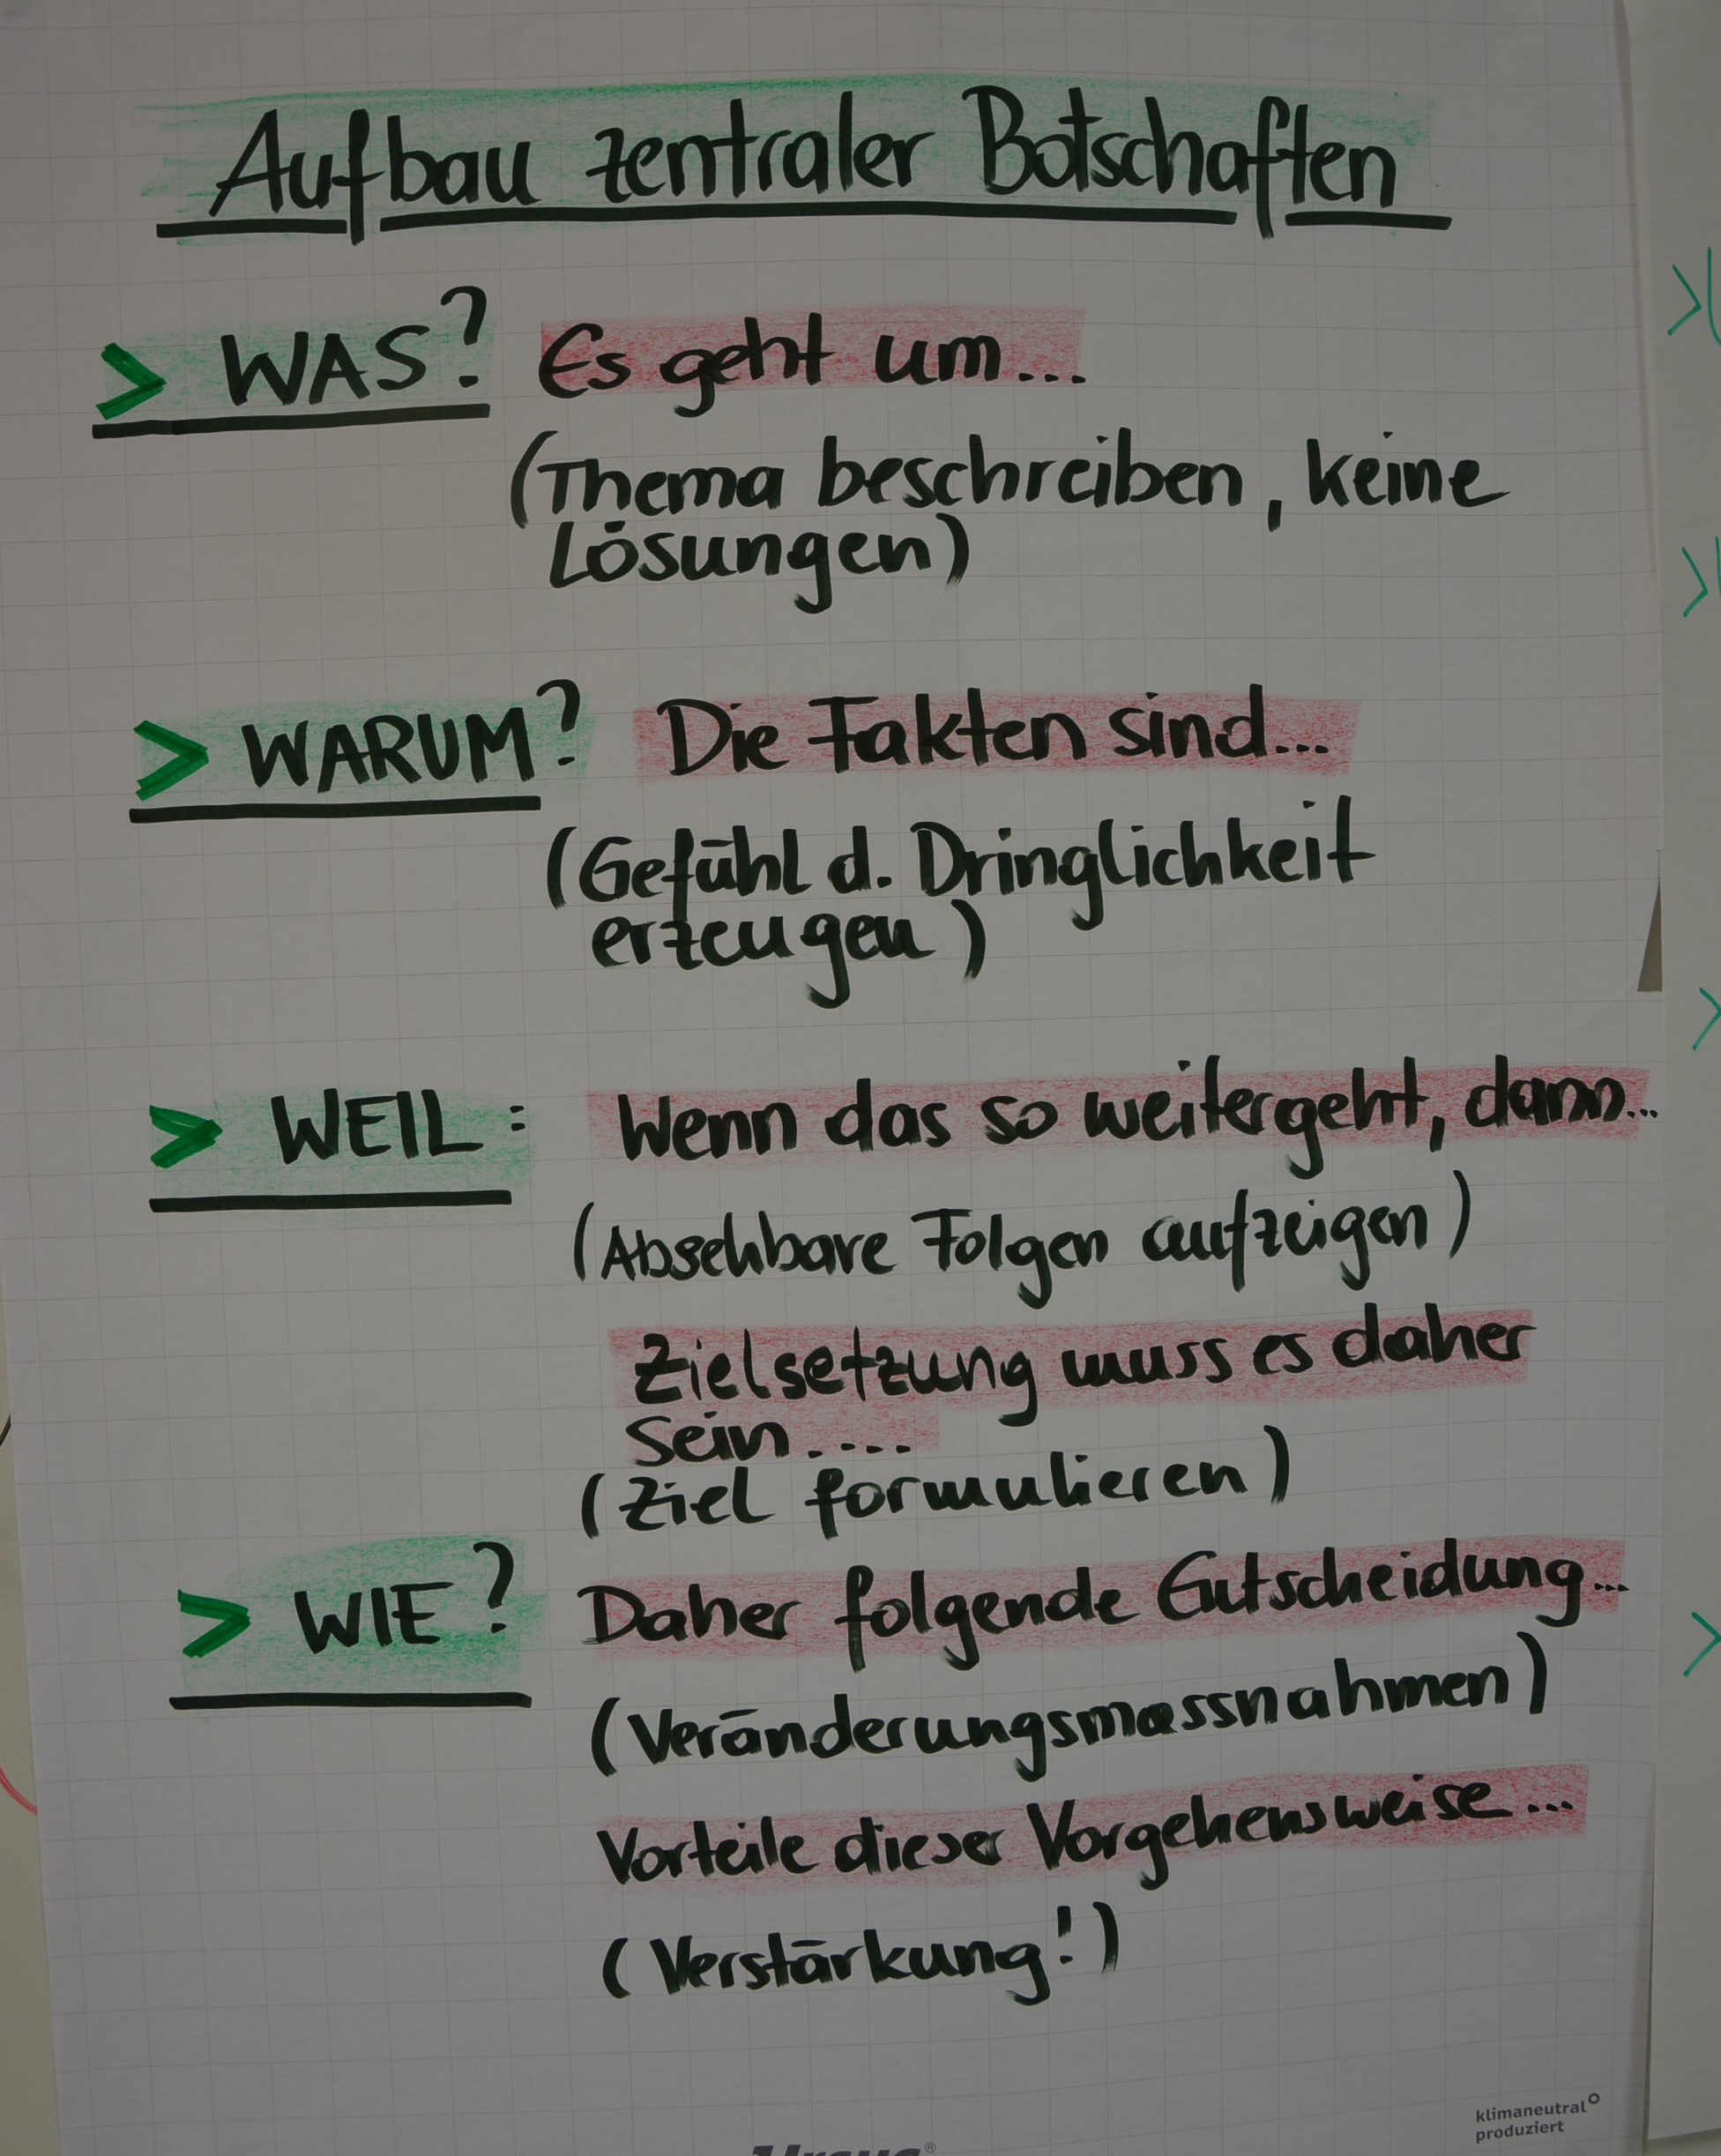 Aufbau zentraler Botschaften
> WAS? Es geht um...
(Thema beschreiben, keine
Lösungen)
> WARUM? Die Fakten sind...
(Gefühl d. Dringlichkeit
erzeugen)
> WEIL: Wenn das so weitergeht, dann...
(Absehbare Folgen aufzeigen)
Zielsetzung muss es daher
sein....
(Ziel formulieren)
> WIE? Daher folgende Entscheidung...
(Veränderungsmassnahmen)
Vorteile dieser Vorgehensweise...
(Verstärkung!)
klimaneutral
produziert